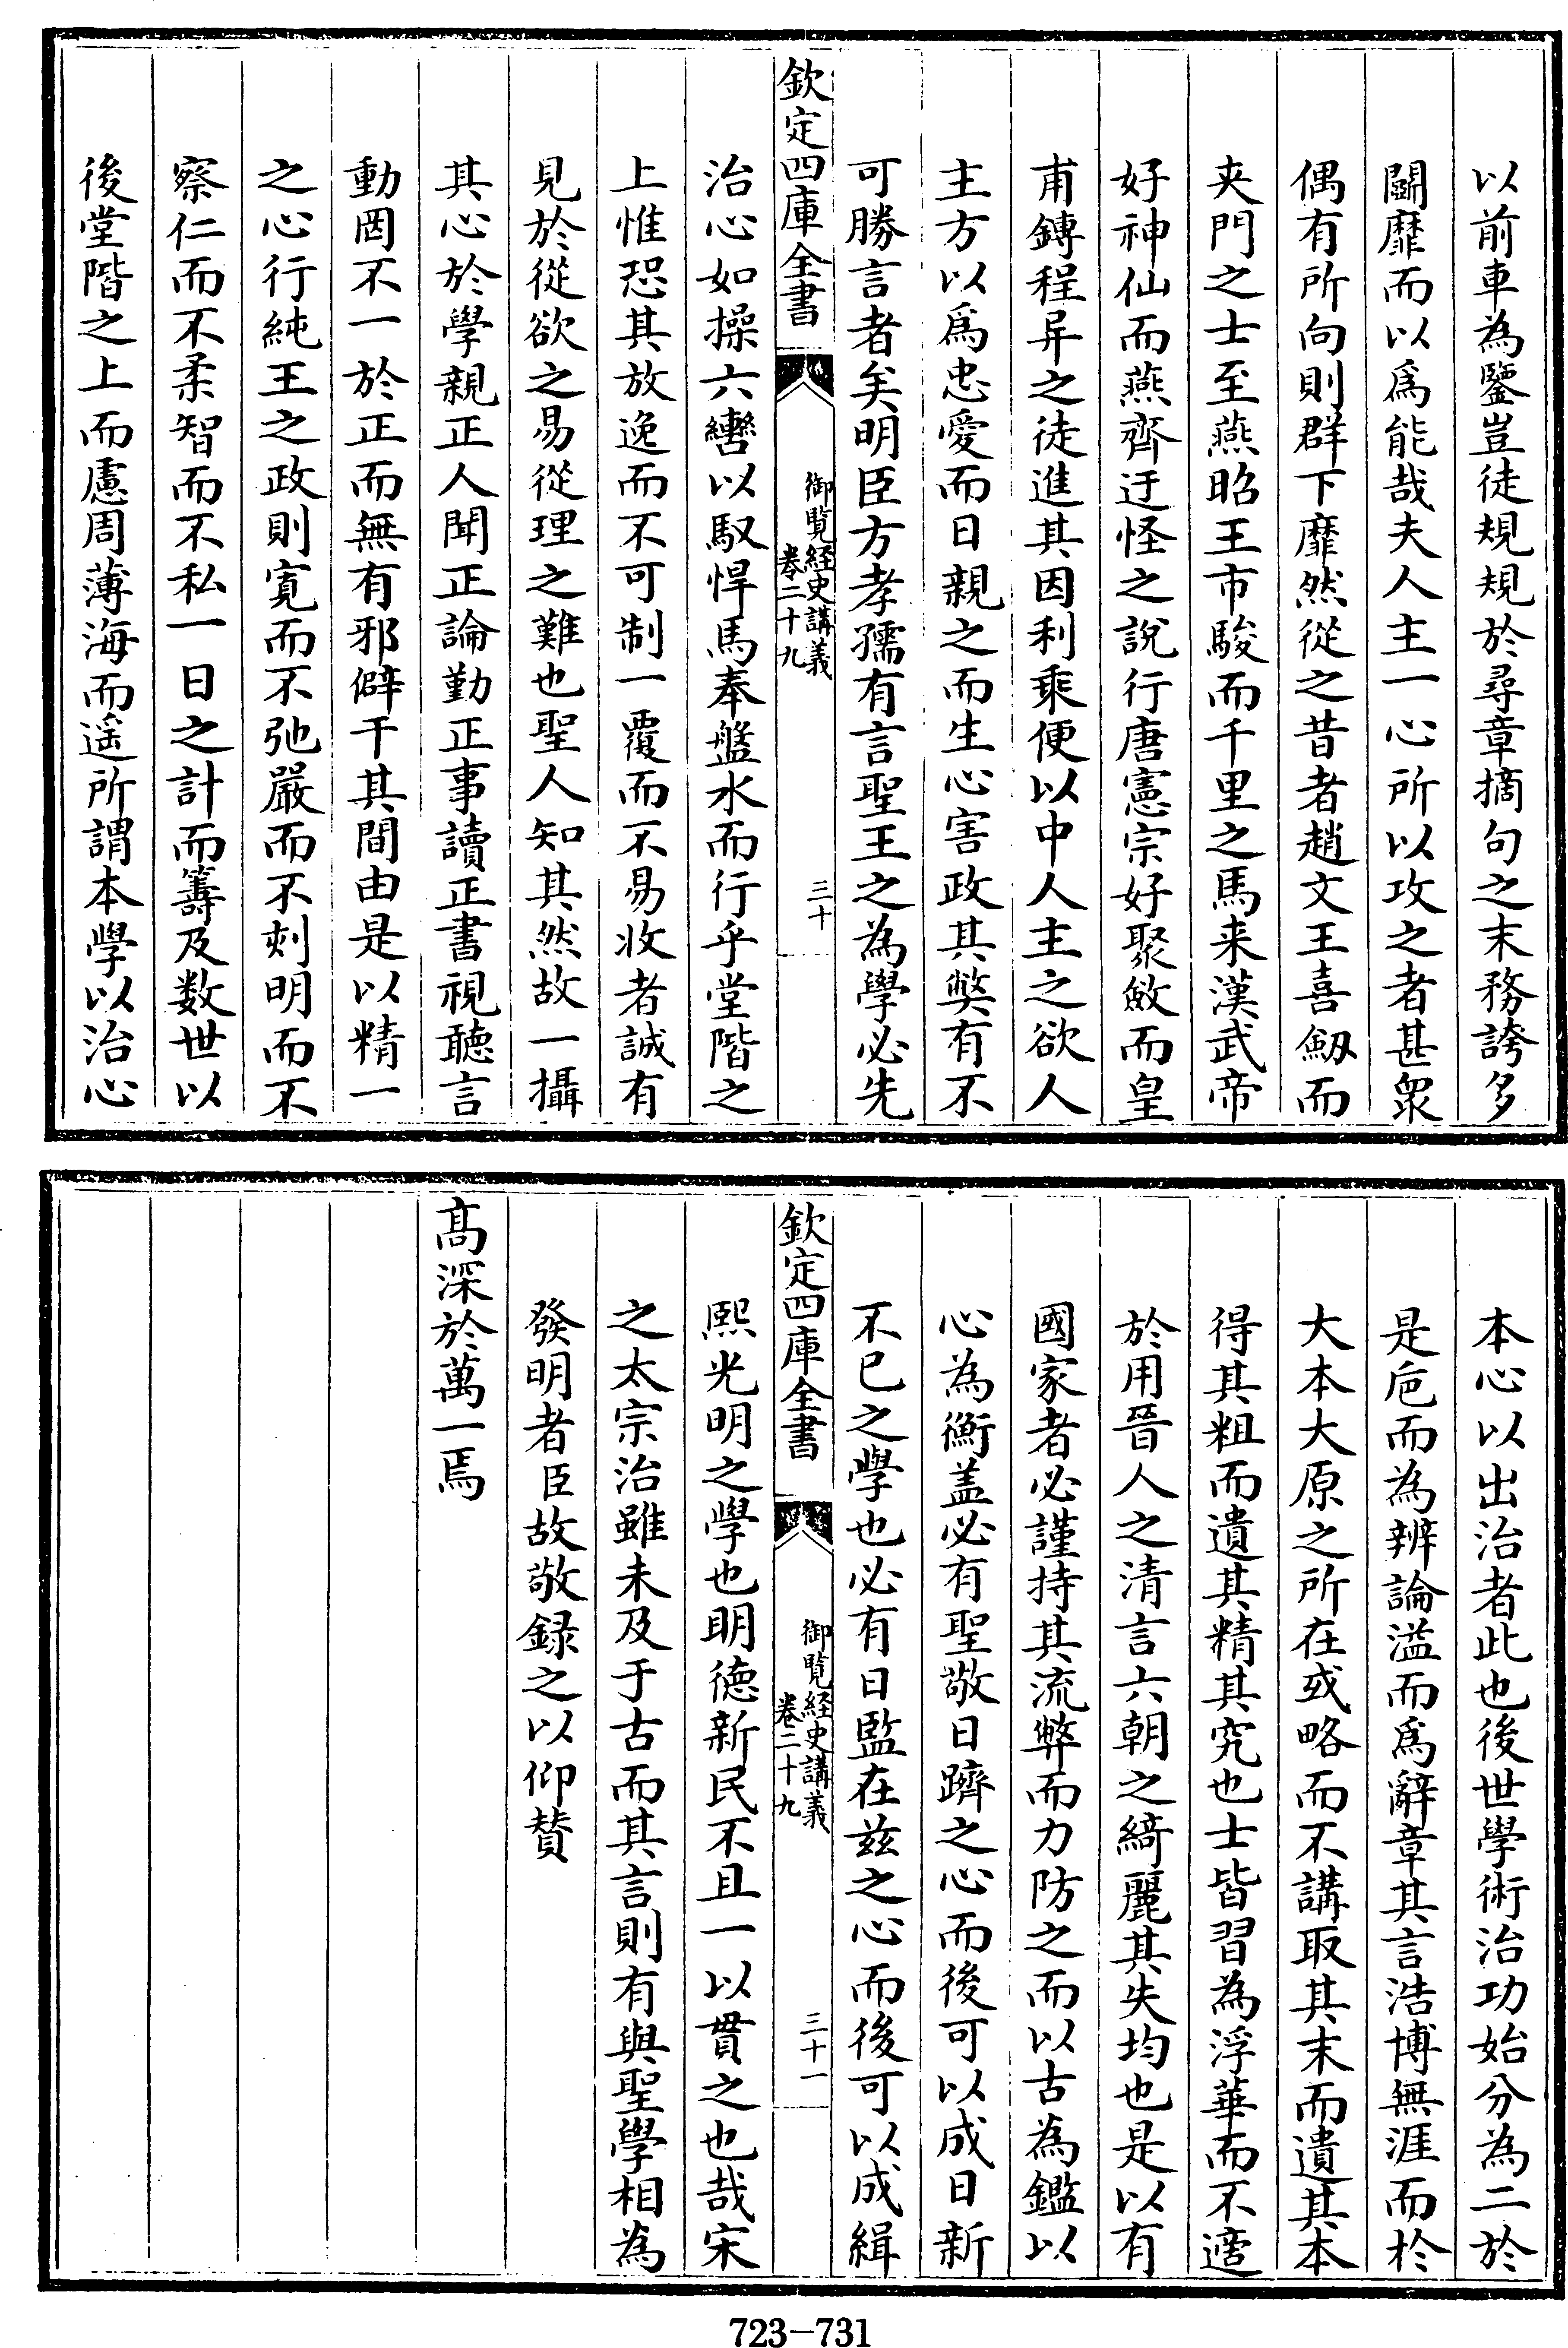 以前車為鑒豈徒規規於尋章摘句之末務誇多
鬬靡而以爲能哉夫人主一心所以攻之者甚衆
偶有所向則群下靡然從之昔者趙文王喜劔而
夾門之士至燕昭王市駿而千里之馬来漢武帝
好神仙而燕齊迂怪之說行唐憲宗好聚斂而皇
甫鏄程异之徒進其因利乘便以中人主之欲人
主方以爲忠愛而日親之而生心害政其弊有不
可勝言者矣明臣方孝孺有言聖王之為學必先
欽定四庫全書
御覧經史講義
卷二十九
三十
治心如操六轡以馭悍馬奉盤水而行乎堂階之
上惟恐其放逸而不可制一覆而不易收者誠有
見於從欲之易從理之難也聖人知其然故一攝
其心於學親正人聞正論勤正事讀正書視聽言
動罔不一於正而無有邪僻干其間由是以精一
之心行純王之政則寛而不弛嚴而不刻明而不
察仁而不柔智而不私一日之計而籌及数世以
後堂階之上而慮周薄海而遥所謂本學以治心
本心以出治者此也後世學術治功始分為二於
是巵而為辨論溢而爲辭章其言浩博無涯而於
大本大原之所在或略而不講取其末而遺其本
得其粗而遺其精其究也士皆習為浮華而不適
於用晉人之清言六朝之綺麗其失均也是以有
國家者必謹持其流弊而力防之而以古為鑑以
心為衡盖必有聖敬日躋之心而後可以成日新
不已之學也必有日監在兹之心而後可以成緝
欽定四庫全書
御覧經史講義
卷二十九
三十一
熙光明之學也明德新民不且一以貫之也哉宋
之太宗治雖未及于古而其言則有與聖學相為
發明者臣故敬録之以仰賛
髙深於萬一焉
723-731